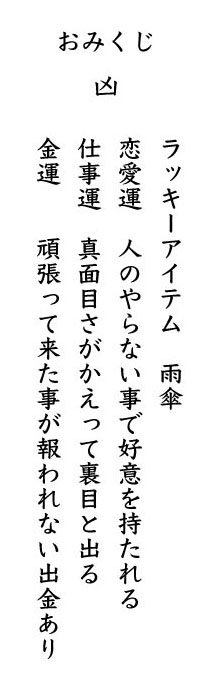 おみくじ
凶
ラッキーアイテム 雨傘
恋愛運 人のやらない事で好意を持たれる
仕事運 真面目さがかえって裏目と出る
金運 頑張って来た事が報われない出金あり